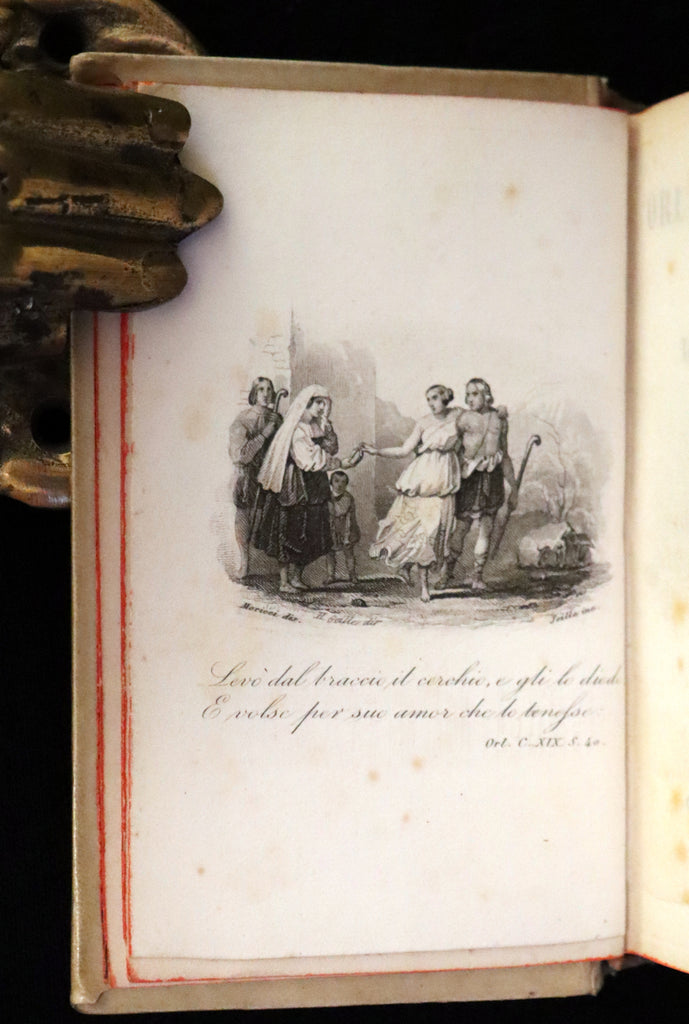 Moricci dis. Il Gallo dir
Levò dal braccio il cerchio, e gli lo diede
E volse per suo amor che lo tenesse:
Orl. C. XIX. S. 40.
ORL